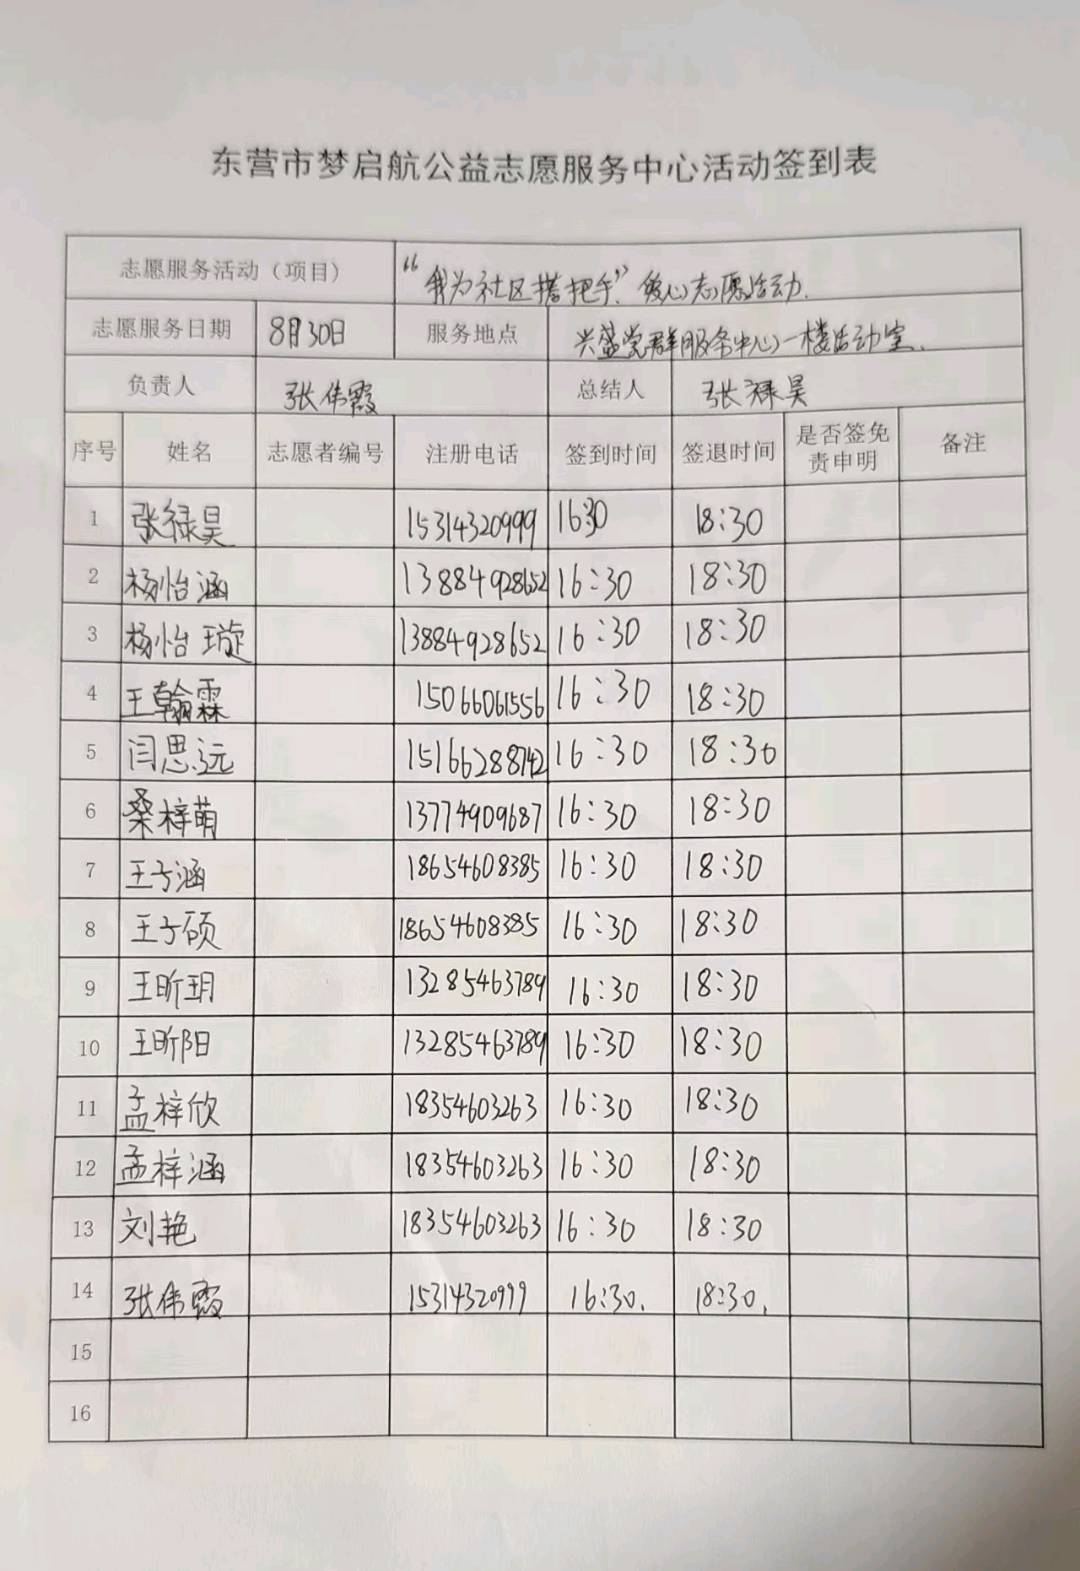 东营市梦启航公益志愿服务中心活动签到表
志愿服务活动（项目） “我为社区搭把手”爱心志愿活动.
志愿服务日期 8月30日 服务地点 兴盛党群服务中心一楼活动室.
负责人 张伟霞 总结人 张禄昊
序号 姓名 志愿者编号 注册电话 签到时间 签退时间 是否签免责申明 备注
1 张禄昊 15314320999 16:30 18:30
2 杨怡涵 13884928652 16:30 18:30
3 杨怡璇 13884928652 16:30 18:30
4 王翰霖 15066061556 16:30 18:30
5 闫思远 15166288742 16:30 18:30
6 桑梓萌 13774909687 16:30 18:30
7 王子涵 18654608385 16:30 18:30
8 王子硕 18654608385 16:30 18:30
9 王昕玥 13285463789 16:30 18:30
10 王昕阳 13285463789 16:30 18:30
11 孟梓欣 18354603263 16:30 18:30
12 孟梓涵 18354603263 16:30 18:30
13 刘艳 18354603263 16:30 18:30
14 张伟霞 15314320999 16:30. 18:30.
15
16